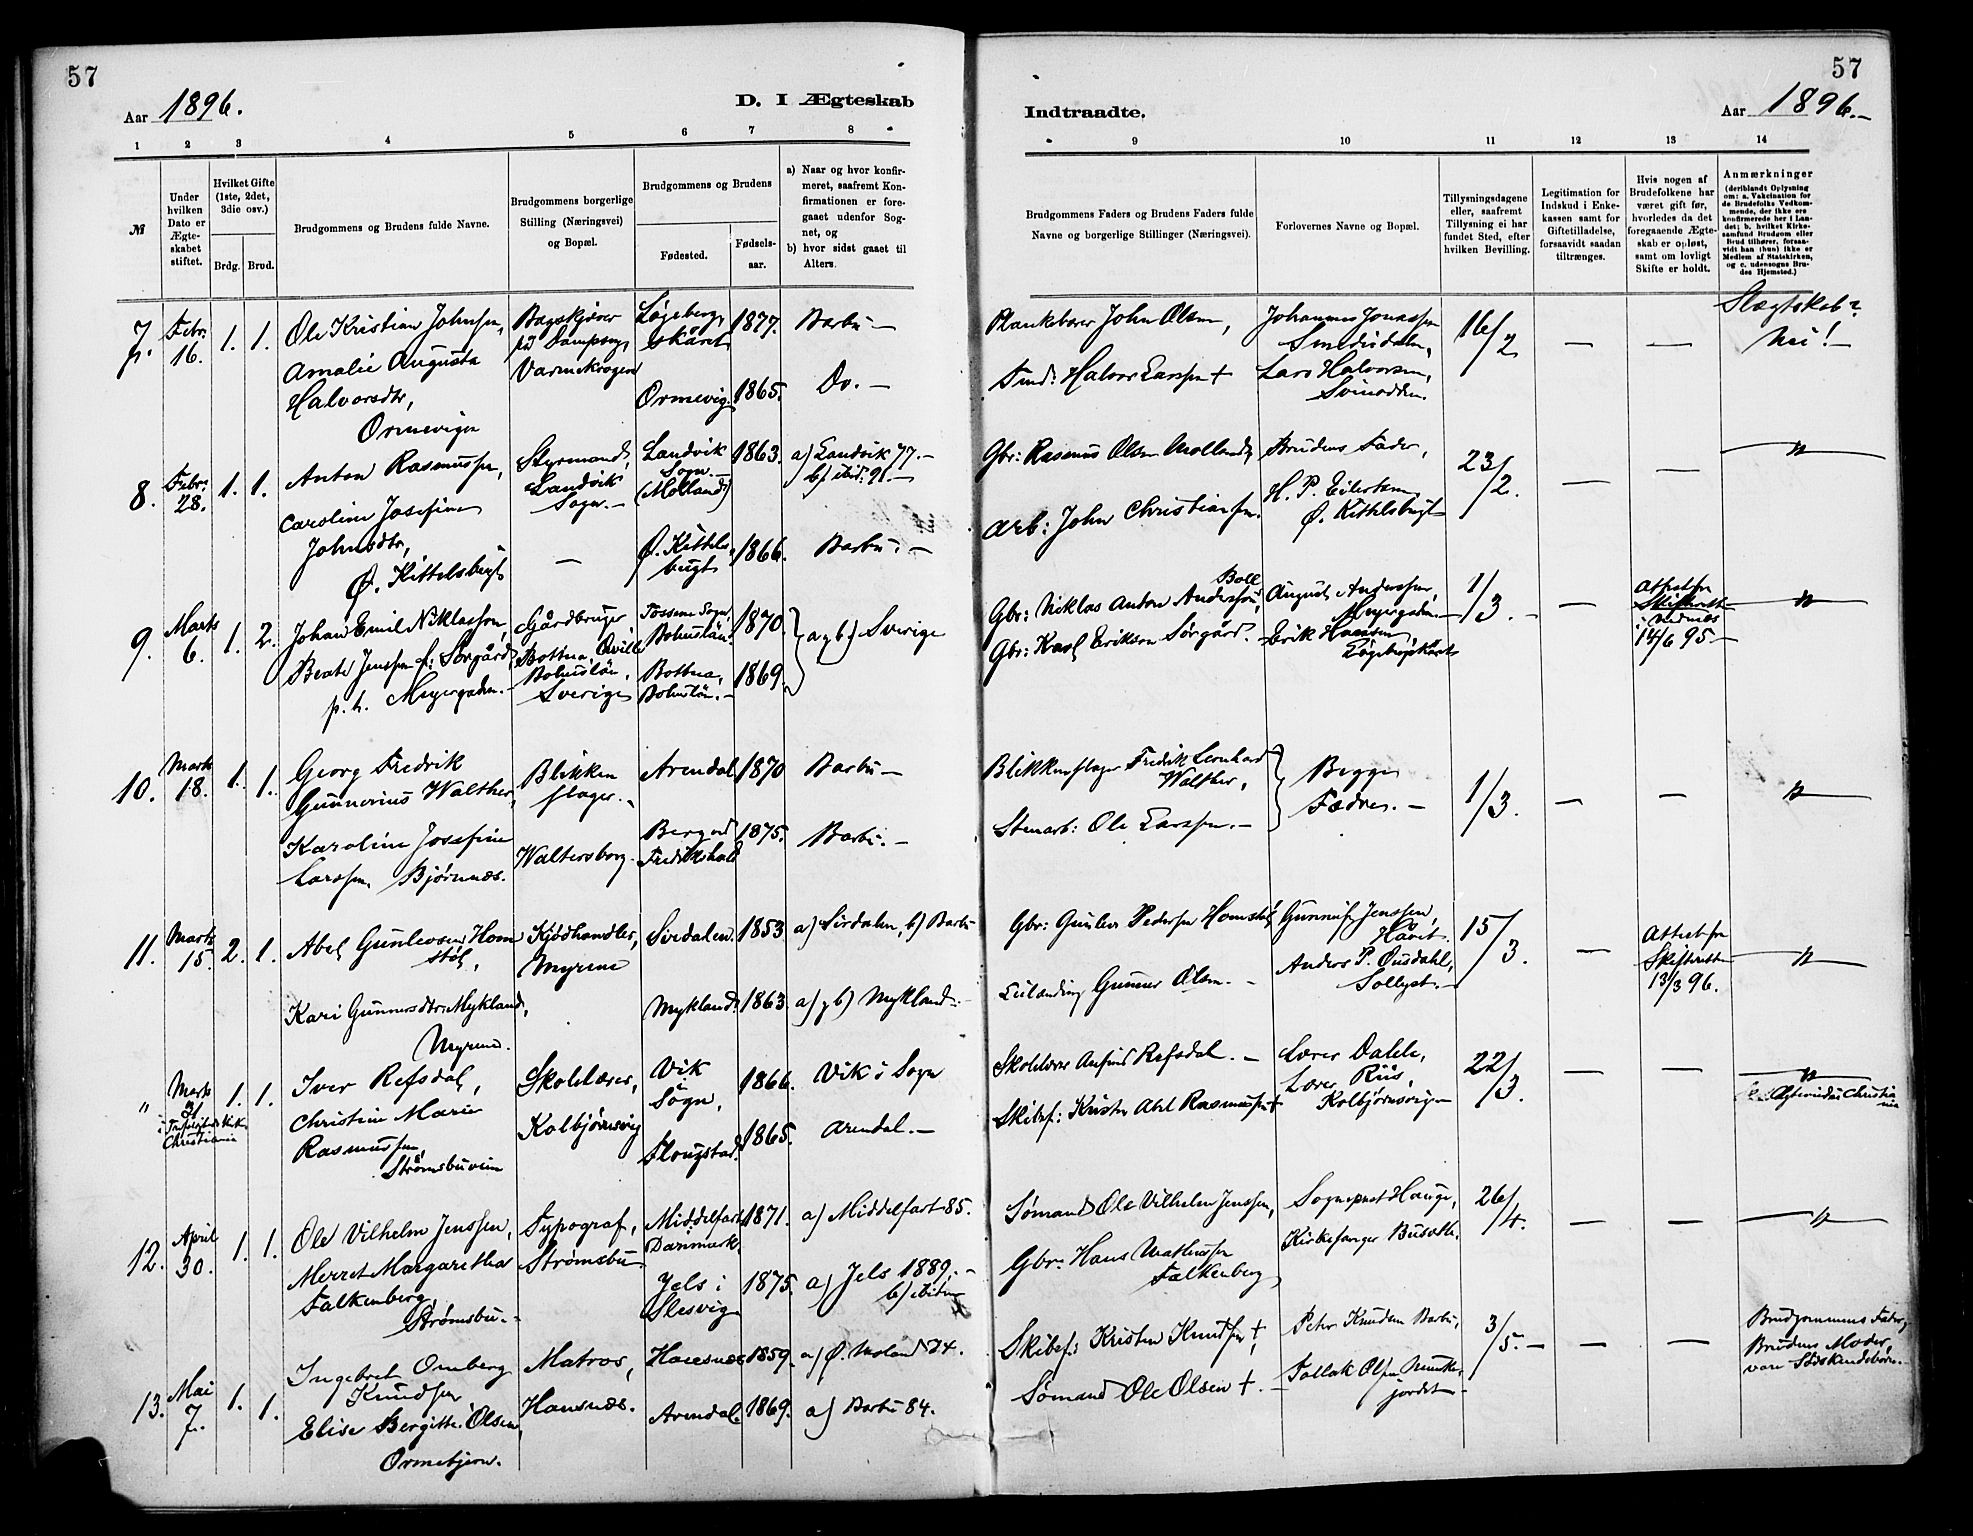 57
Aar 1896.
D. I Ægteskab
1 2 3 4 5 6 7 8
№
Under hvilken Dato er Ægteskabet stiftet.
Hvilket Gifte (1ste, 2det, 3die osv.)
Brdg. Brud.
Brudgommens og Brudens fulde Navne.
Brudgommens borgerlige Stilling (Næringsvei) og Bopæl.
Brudgommens og Brudens
Fødested.
Fødselsaar.
a) Naar og hvor konfirmeret, saafremt Konfirmationen er foregaaet udenfor Sognet, og
b) hvor sidst gaaet til Alters.
7
Febr. 16.
1. 1.
Ole Kristian Johnsen,
Amalie Augusta
Halvorsdtr,
Ormevigen
1877.
Barbu —
Ormevig.
1865.
Do. —
8.
Febr. 28.
1. 1.
Anton Rasmussen,
Caroline Josefine
Johnsdtr,
Ø. Kittelsbugt
Styrmand,
Landvik
Sogn. —
Landvik
Sogn.
(Molland)
1863.
a) Landvik 77. —
b) ibid: 91. —
Ø. Kittels-
bugt
1866.
Barbu. —
9.
Marts 6.
1. 2.
Johan Emil Niklasson,
Beate Jenssen f: Sørgård,
p. t. Meyergaden. —
Gårdbruger
Bottna, Qville
Bohuslän,
Sverige
Tossene Sogn,
Bohuslän.
1870
a og b) Sverige
Bottna,
Bohuslän. —
1869.
10.
Marts 18.
1. 1.
Georg Fredrik
Gunnerius Walther,
Karoline Josefine
Larssen, Bjørnnæs.
Blikken
slager. —
Waltersborg.
Arendal
1870
Barbu —
Berg ved
Fredrikshald
1875.
Barbu. —
11.
Marts 15.
2. 1.
Abel Gunleosen Hom
støl,
Kari Gunnersdtr Mykland,
Myrene.
Kjødhandler,
Myrene
Sirdalen.
1853
a) Sirdalen, b) Barbu
Mykland.
1863
a) og b) Mykland. —
"
Marts
Christiania
1. 1.
Iver Refsdal,
Christine Marie
Rasmussen,
Strømsbuveien
Skolelærer,
Kolbjørnsvig
Vik
i
Sogn,
1866.
Vik i Sogn
Flougstad.
1865.
Arendal. —
12.
April 30.
1. 1.
Ole Vilhelm Jenssen,
Merret Margaretha
Falkenberg,
Strømsbu. —
Typograf,
Strømsbu
Middelfart
Danmark.
1871.
a) Middelfart 85.
Jels i
Slesvig
1875.
a) Jels 1889. —
b) ibidem
13.
Mai 7.
1. 1.
Ingebret Omberg
Knudsen
Elise Bergitte Olsen,
Ormebjern.
Matros,
Hansnæs.
1859.
a) Ø. Moland 74.
Arendal.
1869.
a) Barbu 84.
57
Indtraadte.
Aar 1896. —
9 10 11 12 13 14
Brudgommens Faders og Brudens Faders fulde Navne og borgerlige Stillinger (Næringsvei).
Forlovernes Navne og Bopæl.
Tillysningsdagene eller, saafremt Tillysning ei har fundet Sted, efter hvilken Bevilling.
Legitimation for Indskud i Enkekassen samt for Giftetilladelse, forsaavidt saadan tiltrænges.
Hvis nogen af Brudefolkene har været gift før, hvorledes da det foregaaende Ægteskab er opløst, samt om lovligt Skifte er holdt.
Anmærkninger
(deriblandt Oplysning om: a. Vakcination for de Brudefolks Vedkommende, der ikke ere konfirmerede her i Landet; b. hvilket Kirkesamfund Brudgom eller Brud tilhører, forsaavidt han (hun) ikke er Medlem af Statskirken, og c. udensogns Brudes Hjemsted.)
Plankebærer John Olsen,
Johannes Jonassen
Smedsdalen,
16/2
— —
Slægtskab?
Nei! —
Halvor Larssen †
Lars Halvorsen,
Svinodden.
Gbr: Rasmus Olsen Molland,
Brudens Fader,
23/2.
— —
"
Arb: John Christiansen.
H. P. Eilertsen,
Ø. Kittelsbugt
Gbr: Niklas Anton Andersson Boll,
August Anderssen,
Meyergaden. —
1/3. —
—
Attest fra
Skifteret
i Nednæs
14/6 95 —
"
Gbr: Karl Eriksen Sørgård.
Erik Hanssen
Blikkenslager Fredrik Leonhard
Walther,
Begges
Fædre. —
1/3.
— —
"
Stenarb: Ole Larssen. —
Gbr: Gunleo Pedersen Homstøl,
Gunnuf Jenssen,
15/3.
—
Attest fra
Skifteretten
13/3 96.
"
Gunner Olsen. —
Anders P. Ousdahl,
Sollyst. —
Skolelærer Anfind Refsdal. —
Lærer Dahle,
22/3.
"
Skibsf: Krister Abel Rasmussen †
Lærer Riis,
Kolbjørnsvig
Sømand Ole Vilhelm Jenssen,
Sogneprest Hauge,
26/4.
— —
"
Gbr. Hans Mathussen
Falkenberg
Kirkesanger Busvolle.
Skibsf: Kristen Knudsen †,
Peter Knudsen Barbu,
3/5. —
— —
Brudgommens Fader,
Brudens Moder,
vare Søskendebørn. —
Sømand Ole Olsen †. —
Tallak Olsen Munke-
jordet —